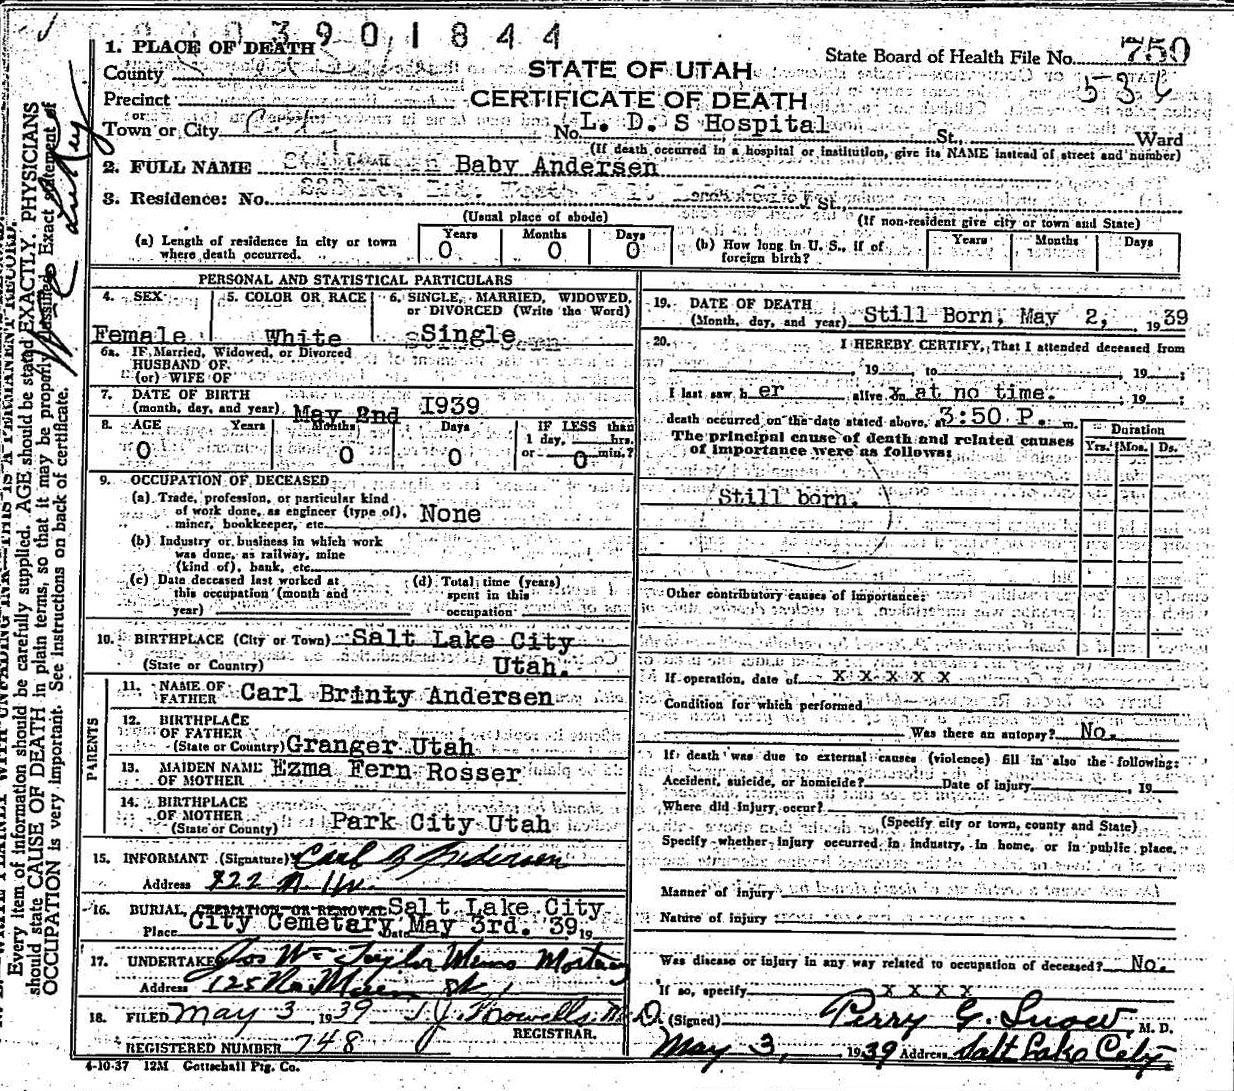 390 1844
1. PLACE OF DEATH
State Board of Health File No. 750
County
STATE OF UTAH
536
Precinct
CERTIFICATE OF DEATH
or
Town or City No. L. D. S Hospital St. Ward
(If death occurred in a hospital or institution, give its NAME instead of street and number)
2. FULL NAME Baby Andersen
3. Residence: No. St.
(Usual place of abode) (If non-resident give city or town and State)
(a) Length of residence in city or town where death occurred. Years 0 Months 0 Days 0
(b) How long in U. S., if of foreign birth? Years Months Days
PERSONAL AND STATISTICAL PARTICULARS
4. SEX Female
5. COLOR OR RACE White
6. SINGLE, MARRIED, WIDOWED, or DIVORCED (Write the Word) Single
6a. IF Married, Widowed, or Divorced
HUSBAND OF
(or) WIFE OF
7. DATE OF BIRTH
(month, day, and year) May 2nd 1939
8. AGE Years Months Days IF LESS than
1 day, hrs.
or min.?
0 0 0 0
9. OCCUPATION OF DECEASED
(a) Trade, profession, or particular kind
of work done, as engineer (type of), None
miner, bookkeeper, etc.
(b) Industry or business in which work
was done, as railway, mine
(kind of), bank, etc.
(c) Date deceased last worked at
this occupation (month and
year)
(d) Total time (years)
spent in this
occupation
10. BIRTHPLACE (City or Town) Salt Lake City
(State or Country) Utah.
PARENTS
11. NAME OF FATHER Carl Brinty Andersen
12. BIRTHPLACE
OF FATHER
(State or Country) Granger Utah
13. MAIDEN NAME
OF MOTHER Ezma Fern Rosser
14. BIRTHPLACE
OF MOTHER
(State or County) Park City Utah
15. INFORMANT (Signature) Carl B Andersen
Address 722 N 1 W.
16. BURIAL, CREMATION OR REMOVAL Salt Lake City
Place City Cemetary Date May 3rd. 39 19
17. UNDERTAKER Jos Wm Taylor Memo Mortuary
Address 125 No Main St
18. FILED May 3 1939 T. J. Howells M.D.
REGISTRAR.
REGISTERED NUMBER 748
4-10-37 12M Gottschall Ptg. Co.
19. DATE OF DEATH
(Month, day, and year) Still Born, May 2, 1939
20. I HEREBY CERTIFY, That I attended deceased from
, 19 , to , 19 ;
I last saw h er alive xn at no time. , 19 ;
death occurred on the date stated above, at 3:50 P. m.
The principal cause of death and related causes
of importance were as follows:
Duration
Yrs. Mos. Ds.
Still born.
Other contributory causes of importance:
If operation, date of X X X X X
Condition for which performed
Was there an autopsy? No.
If death was due to external causes (violence) fill in also the following:
Accident, suicide, or homicide? Date of injury , 19
Where did injury occur?
(Specify city or town, county and State)
Specify whether injury occurred in industry, in home, or in public place.
Manner of injury
Nature of injury
Was disease or injury in any way related to occupation of deceased? No.
If so, specify X X X X
(Signed) Perry G. Snow, M. D.
May 3, 1939 Address Salt Lake City
Every item of information should be carefully supplied. AGE should be stated EXACTLY. PHYSICIANS
should state CAUSE OF DEATH in plain terms, so that it may be properly classified. Exact statement of
OCCUPATION is very important. See instructions on back of certificate.